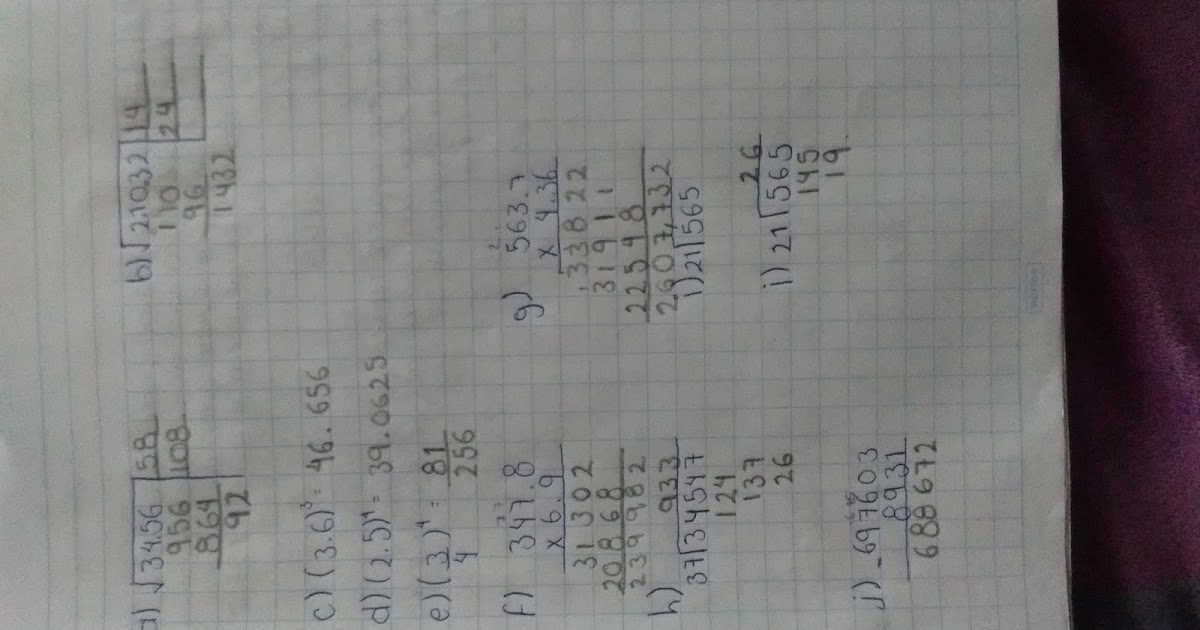 a) √34.56 |58
956 |108
864
92
b) √2.1032 |14
110 |24
96
1432
c) (3.6)³ = 46.656
d) (2.5)⁴ = 39.0625
e) (3/4)⁴ = 81/256
f) 347.8
x 6.9
31302
20868
239982
g) 563.7
x 4.36
33822
16911
22548
2607,732
h) 933
37√34547
124
137
26
i) 21√565
i) 26
21√565
145
19
j) - 697603
8931
688672